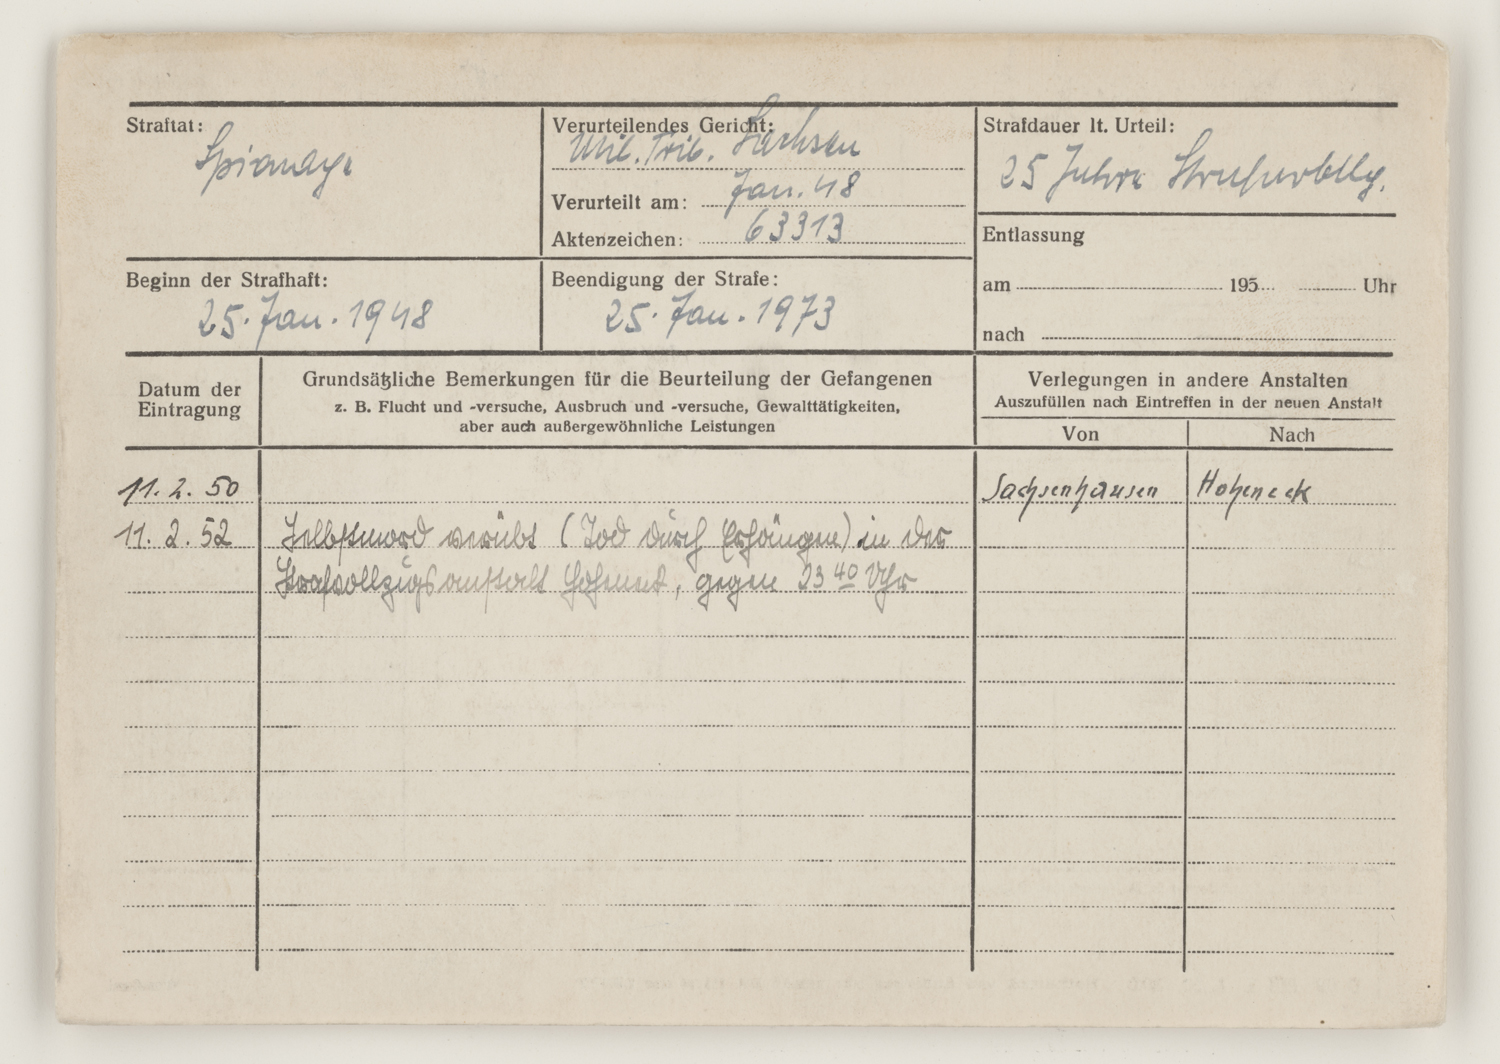 Straftat:
Spionage
Verurteilendes Gericht:
Mil. Trib. Sachsen
Verurteilt am: Jan. 48
Aktenzeichen: 63313
Strafdauer lt. Urteil:
25 Jahre
Entlassung
am 195 Uhr
nach
Beginn der Strafhaft:
25. Jan. 1948
Beendigung der Strafe:
25. Jan. 1973
Datum der
Eintragung
Grundsätzliche Bemerkungen für die Beurteilung der Gefangenen
z. B. Flucht und -versuche, Ausbruch und -versuche, Gewalttätigkeiten,
aber auch außergewöhnliche Leistungen
Verlegungen in andere Anstalten
Auszufüllen nach Eintreffen in der neuen Anstalt
Von Nach
11. 2. 50 Sachsenhausen Hoheneck
11. 2. 52 Selbstmord verübt (Tod durch Erhängen) in der
Strafvollzugsanstalt Hoheneck, gegen 23 40 Uhr